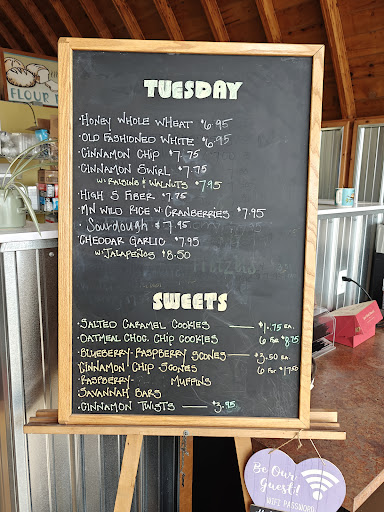 FLOUR
TUESDAY
·HONEY WHOLE WHEAT $6.95
·OLD FASHIONED WHITE $6.95
·CINNAMON CHIP $7.75
·CINNAMON SWIRL $7.75
W/RAISINS & WALNUTS $7.95
·HIGH 5 FIBER $7.75
·MN WILD RICE W/CRANBERRIES $7.95
·Sourdough $7.95
·CHEDDAR GARLIC $7.95
W/JALAPEÑOS $8.50
SWEETS
·SALTED CARAMEL COOKIES — $1.75 EA.
·OATMEAL CHOC. CHIP COOKIES 6 FOR $8.75
·BLUEBERRY-RASPBERRY SCONES — $3.50 EA.
·CINNAMON CHIP SCONES 6 FOR $17.50
·RASPBERRY- MUFFINS
SAVANNAH BARS
·CINNAMON TWISTS — $3.95
Be Our
Guest!
WIFI PASSWORD